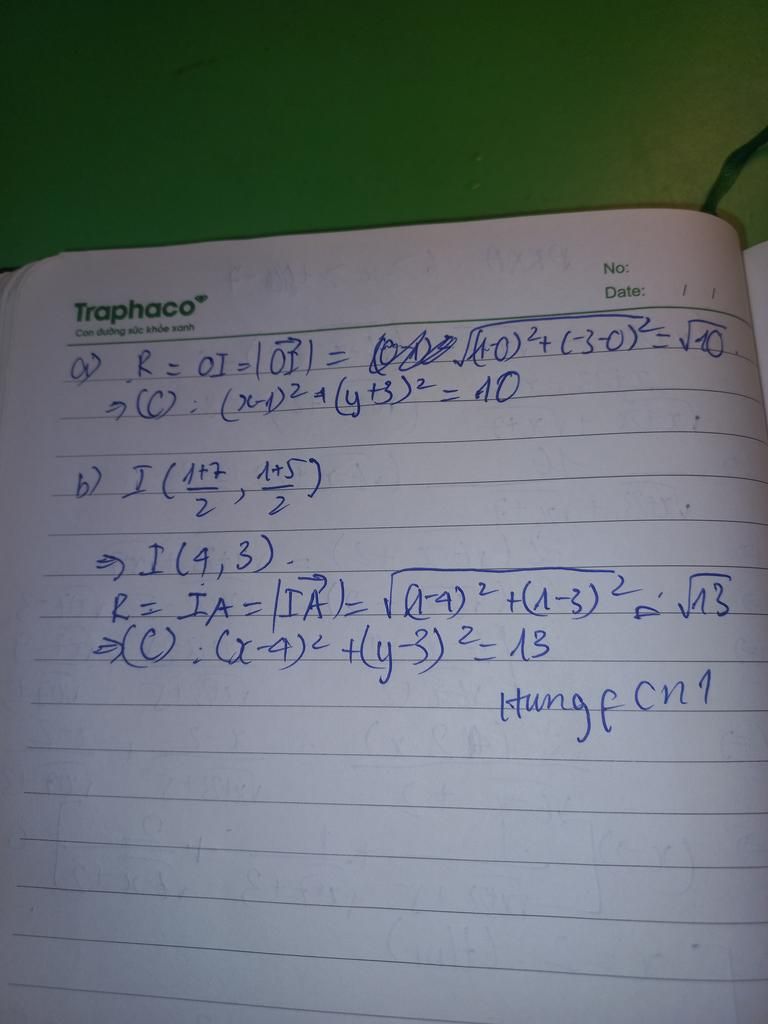 No:
Date: / /
Traphaco
Con đường sức khỏe xanh
a) R = OI = |\vec{OI}| = √((1-0)² + (-3-0)²) = √10.
⇒ (C) : (x-1)² + (y+3)² = 10
b) I ((1+7)/2, (1+5)/2)
⇒ I (4, 3).
R = IA = |\vec{IA}| = √((1-4)² + (1-3)²) = √13
⇒ (C) : (x-4)² + (y-3)² = 13